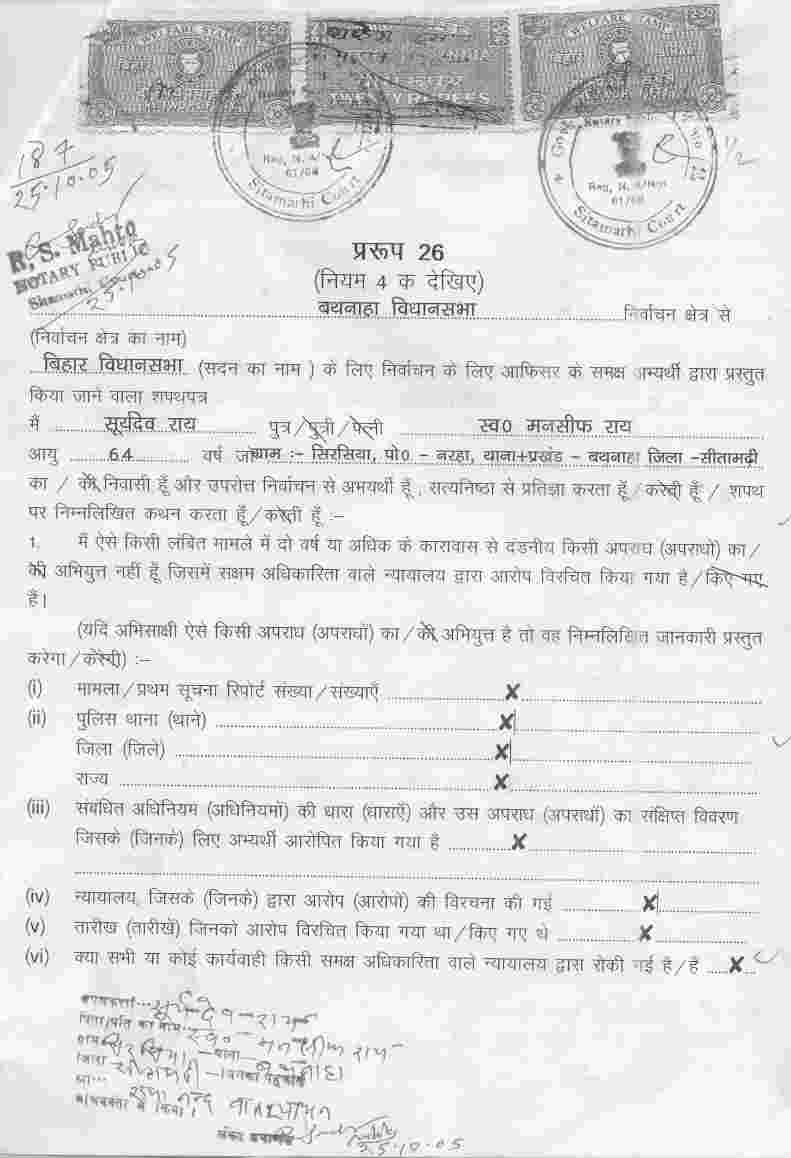 WELFARE STAMP
बिहार BIHAR
TWENTY RUPEES
WELFARE STAMP
बिहार BIHAR
184
25.10.05
Sitamarhi Court
Notary
Sitamarhi Court
R. S. Mahto
NOTARY PUBLIC
25.10.05
प्ररूप 26
(नियम 4 क देखिए)
बथनाहा विधानसभा निर्वाचन क्षेत्र से
(निर्वाचन क्षेत्र का नाम)
बिहार विधानसभा (सदन का नाम ) के लिए निर्वाचन के लिए आफिसर के समक्ष अभ्यर्थी द्वारा प्रस्तुत
किया जाने वाला शपथपत्र
मैं सूर्यदेव राय पुत्र/पुत्री/पत्नी स्व0 मनसीफ राय
आयु 64 वर्ष जो ग्राम :- सिरसिया, पो0 - नरहा, थाना+प्रखंड - बथनाहा जिला -सीतामढ़ी
का / की निवासी हूँ और उपरोक्त निर्वाचन से अभयर्थी हूँ , सत्यनिष्ठा से प्रतिज्ञा करता हूँ/करती हूँ / शपथ
पर निम्नलिखित कथन करता हूँ/करती हूँ :–
1. मैं ऐसे किसी लंबित मामले में दो वर्ष या अधिक के कारावास से दंडनीय किसी अपराध (अपराधो) का/
की अभियुक्त नहीं हूँ जिसमें सक्षम अधिकारिता वाले न्यायालय द्वारा आरोप विरचित किया गया है/किए गए
हैं।
(यदि अभिसाक्षी ऐसे किसी अपराध (अपराधों) का/की अभियुक्त है तो वह निम्नलिखित जानकारी प्रस्तुत
करेगा/करेगी) :–
(i) मामला/प्रथम सूचना रिपोर्ट संख्या/संख्याएँ ✗
(ii) पुलिस थाना (थाने) ✗
जिला (जिले) ✗
राज्य ✗
(iii) संबंधित अधिनियम (अधिनियमों) की धारा (धाराएँ) और उस अपराध (अपराधों) का संक्षिप्त विवरण
जिसके (जिनके) लिए अभ्यर्थी आरोपित किया गया है ✗
(iv) न्यायालय, जिसके (जिनके) द्वारा आरोप (आरोपो) की विरचना की गई ✗
(v) तारीख (तारीखें) जिनको आरोप विरचित किया गया था/किए गए थे ✗
(vi) क्या सभी या कोई कार्यवाही किसी समक्ष अधिकारिता वाले न्यायालय द्वारा रोकी गई है/हैं ✗
सूर्यदेव राय
पिता/पति का नाम
ग्राम सिरसिया थाना बथनाहा
जिला सीतामढ़ी जिनका पहचान
25.10.05